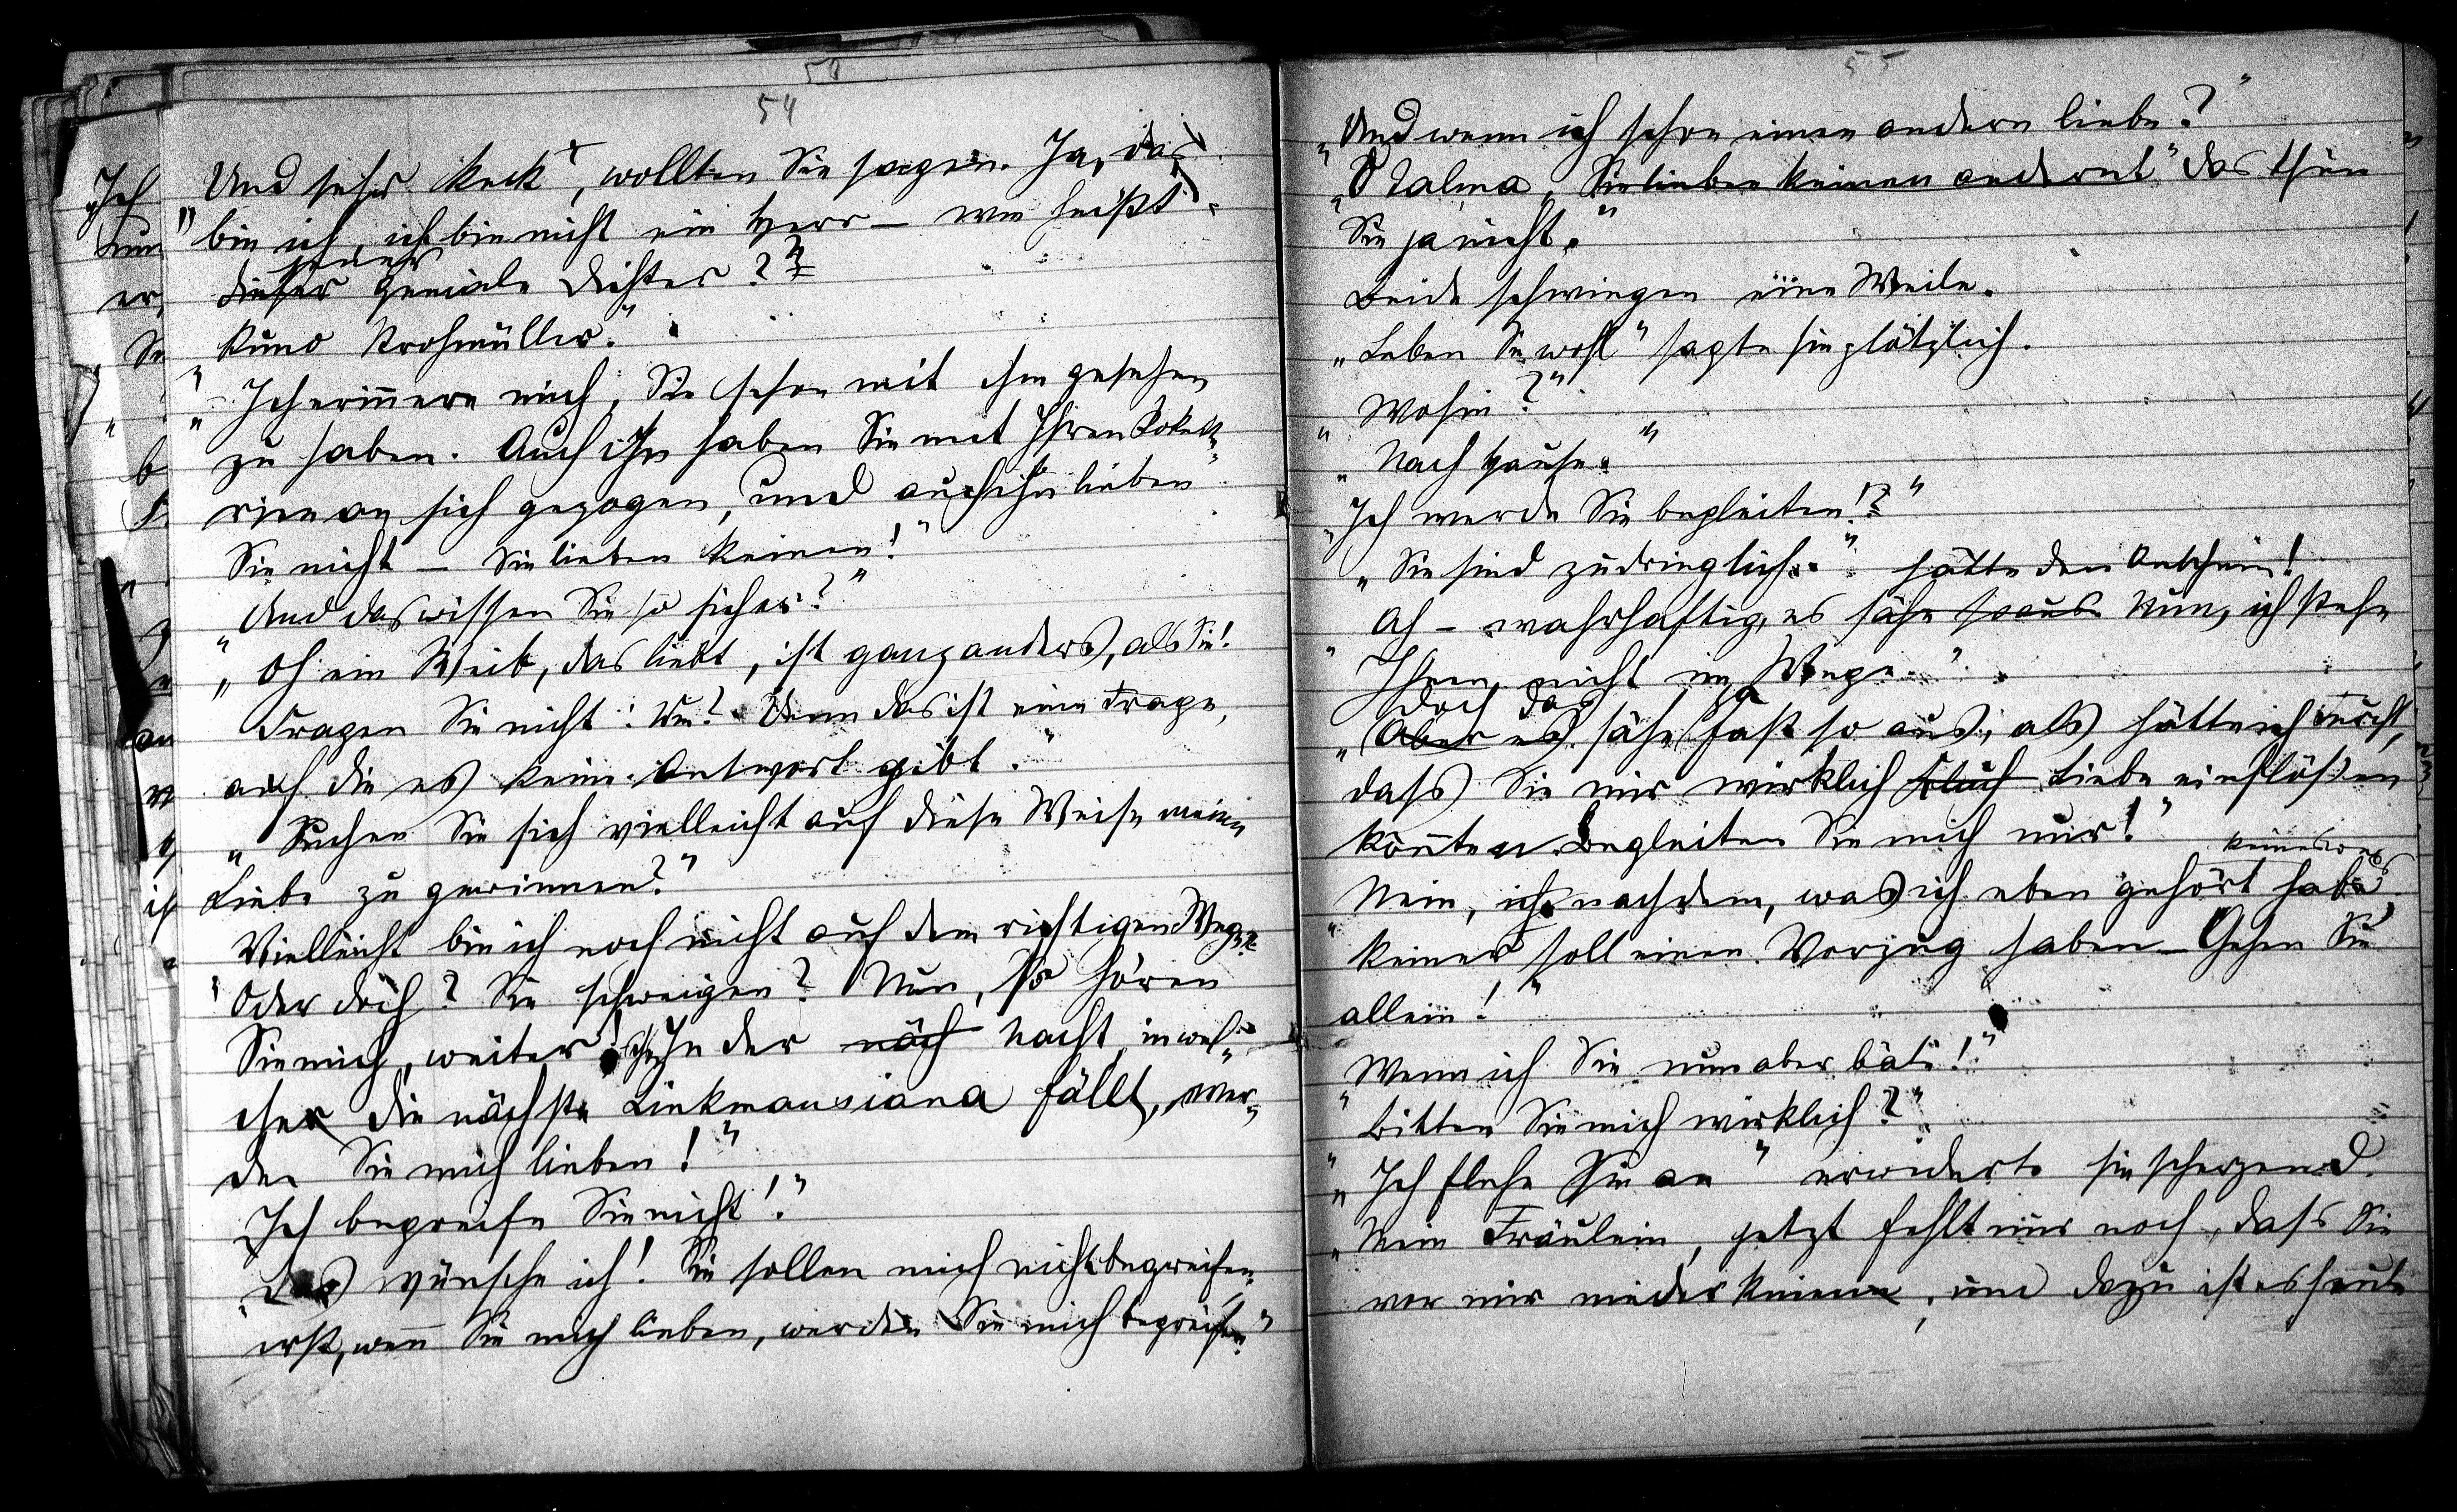 50
54
Und sehr keck, wollten Sie sagen. Ja, das
"bin ich, ich bin nicht ein Herr – wie heißt
jener
dieser geniale Dichter?"
"Kuno Krohmüller."
"Ich erinnere mich, Sie schon mit ihm gesehen
zu haben. Auch ihn haben Sie mit Ihren Kokett-
rien an sich gezogen, und auch ihn lieben
Sie nicht – Sie lieben keinen!"
"Und das wissen Sie so sicher?"
"Oh ein Weib, das liebt, ist ganz anders, als Sie!
Fragen Sie nicht: Wie? Denn das ist eine Frage,
auf die es keine Antwort gibt."
"Suchen Sie sich vielleicht auf diese Weise meine
Liebe zu gewinnen?"
Vielleicht bin ich noch nicht auf dem richtigen Wege.
"Oder doch? Sie schweigen? Nun, so hören
Sie mich weiter! In der näch Nacht, in wel-
cher die nächste Linkmausiana fällt, wer-
den Sie mich lieben!"
Ich begreife Sie nicht!"
"Das wünsche ich! Sie sollen mich nicht begreifen,
erst, wenn Sie mich lieben, werden Sie mich begreifen"
55
"Und wenn ich schon einen andern liebe?"
"O Talma, Sie lieben keinen andern! das thun
Sie ja nicht."
Beide schwiegen eine Weile.
"Leben Sie wohl" sagte sie plötzlich.
"Wohin?"
"Nach Hause."
"Ich werde Sie begleiten!?"
"Sie sind zudringlich." hätte den Anschein!
"Ah – wahrhaftig, es sähe so aus Nun, ich stehe
Ihnen nicht im Wege."
doch das ja
"Aber es sähe fast so aus, als hätte ich Furcht,
dass Sie mir wirklich Liebe einflößen
könnten. Begleiten Sie mich nur!"
keineswegs
"Nein, ich nach dem, was ich eben gehört habe,
keiner soll einen Vorzug haben – Gehen Sie
allein!"
"Wenn ich Sie nun aber bäte!"
"Bitten Sie mich wirklich?"
"Ich flehe Sie an" erwiderte sie scherzend.
"Mein Fräulein, jetzt fehlt nur noch, dass Sie
vor mir niederknien, und dazu ist es heute